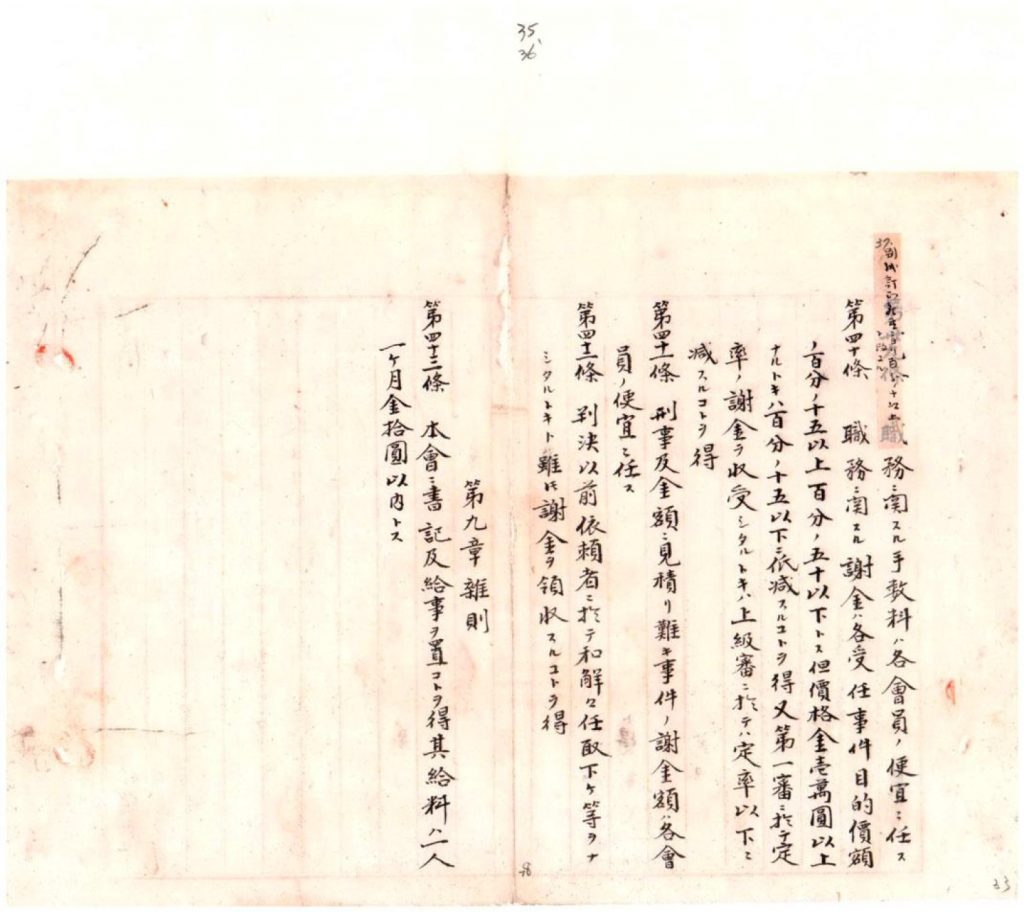 35、
36
務ニ関スル手数料ハ各會員ノ便宜ニ任ス
第四十條　職務ニ関スル謝金ハ各受任事件目的價額
ノ百分ノ十五以上百分ノ五十以下トス但價格金壱萬圓以上
ナルトキハ百分ノ十五以下ニ低減スルコトヲ得又第一審ニ於テ定
率ノ謝金ヲ収受シタルトキハ上級審ニ於テハ定率以下ニ
減スルコトヲ得
第四十一條　刑事及金額ニ見積リ難キ事件ノ謝金額ハ各會
員ノ便宜ニ任ス
第四十二條　判決以前依頼者ニ於テ和解々任取下ケ等ヲナ
シタルトキト雖𪜈謝金ヲ領収スルコトヲ得
第九章　雑則
第四十三條　本會ニ書記及給事ヲ置コトヲ得其給料ハ一人
一ケ月金拾圓以内トス